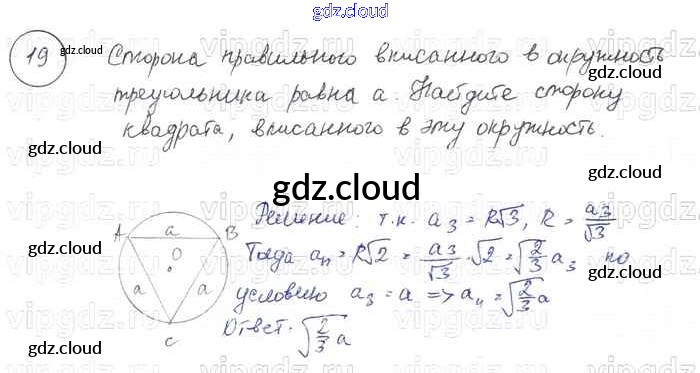 gdz.cloud
19 gdz.cloud Сторона правильного вписанного в окружность
треугольника равна а. Найдите сторону
gdz.cloud
квадрата, вписанного в эту окружность.
gdz.cloud
gdz.cloud
gdz.cloud
gdz.cloud
Решение: т.к. a₃ = R√3, R = a₃/√3
A a B
O
a a
C
Тогда a₄ = R√2 = a₃/√3 · √2 = √(2/3) a₃ по
gdz.cloud
условию a₃ = a => a₄ = √(2/3) a
Ответ. √(2/3) a
gdz.cloud
gdz.cloud